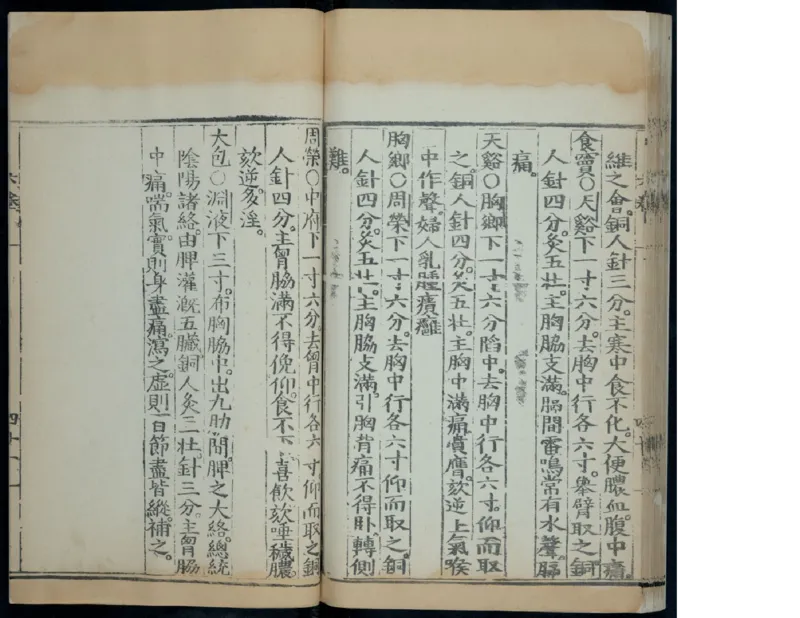 維之會。銅人針三分。主寒中食不化。大便膿血。腹中痛。
食竇○天谿下一寸六分。去胸中行各六寸。舉臂取之銅
人針四分。灸五壯。主胸脇支滿。膈間雷鳴常有水聲。膈
痛。
天谿○胸鄉下一寸六分陷中。去胸中行各六寸。仰而取
之。銅人針四分。灸五壯。主胸中滿痛賁膺。欬逆上氣喉
中作聲。婦人乳腫㿉癰
胸鄉○周榮下一寸六分。去胸中行各六寸仰而取之。銅
人針四分。灸五壯。主胸脇支滿。引胸背痛不得卧。轉側
難。
周榮○中府下一寸六分。去胷中行各六寸仰而取之銅
人針四分。主胷脇滿不得俛仰。食不下喜飲欬唾穢膿
欬逆多淫。
大包○淵液下三寸。布胸脇中。出九肋間脾之大絡。總統
陰陽諸絡。由脾灌漑五臟銅人灸三壯。針三分。主胷脇
中痛。喘氣實則身盡痛。瀉之。虛則百節盡皆縱。補之。
四十一